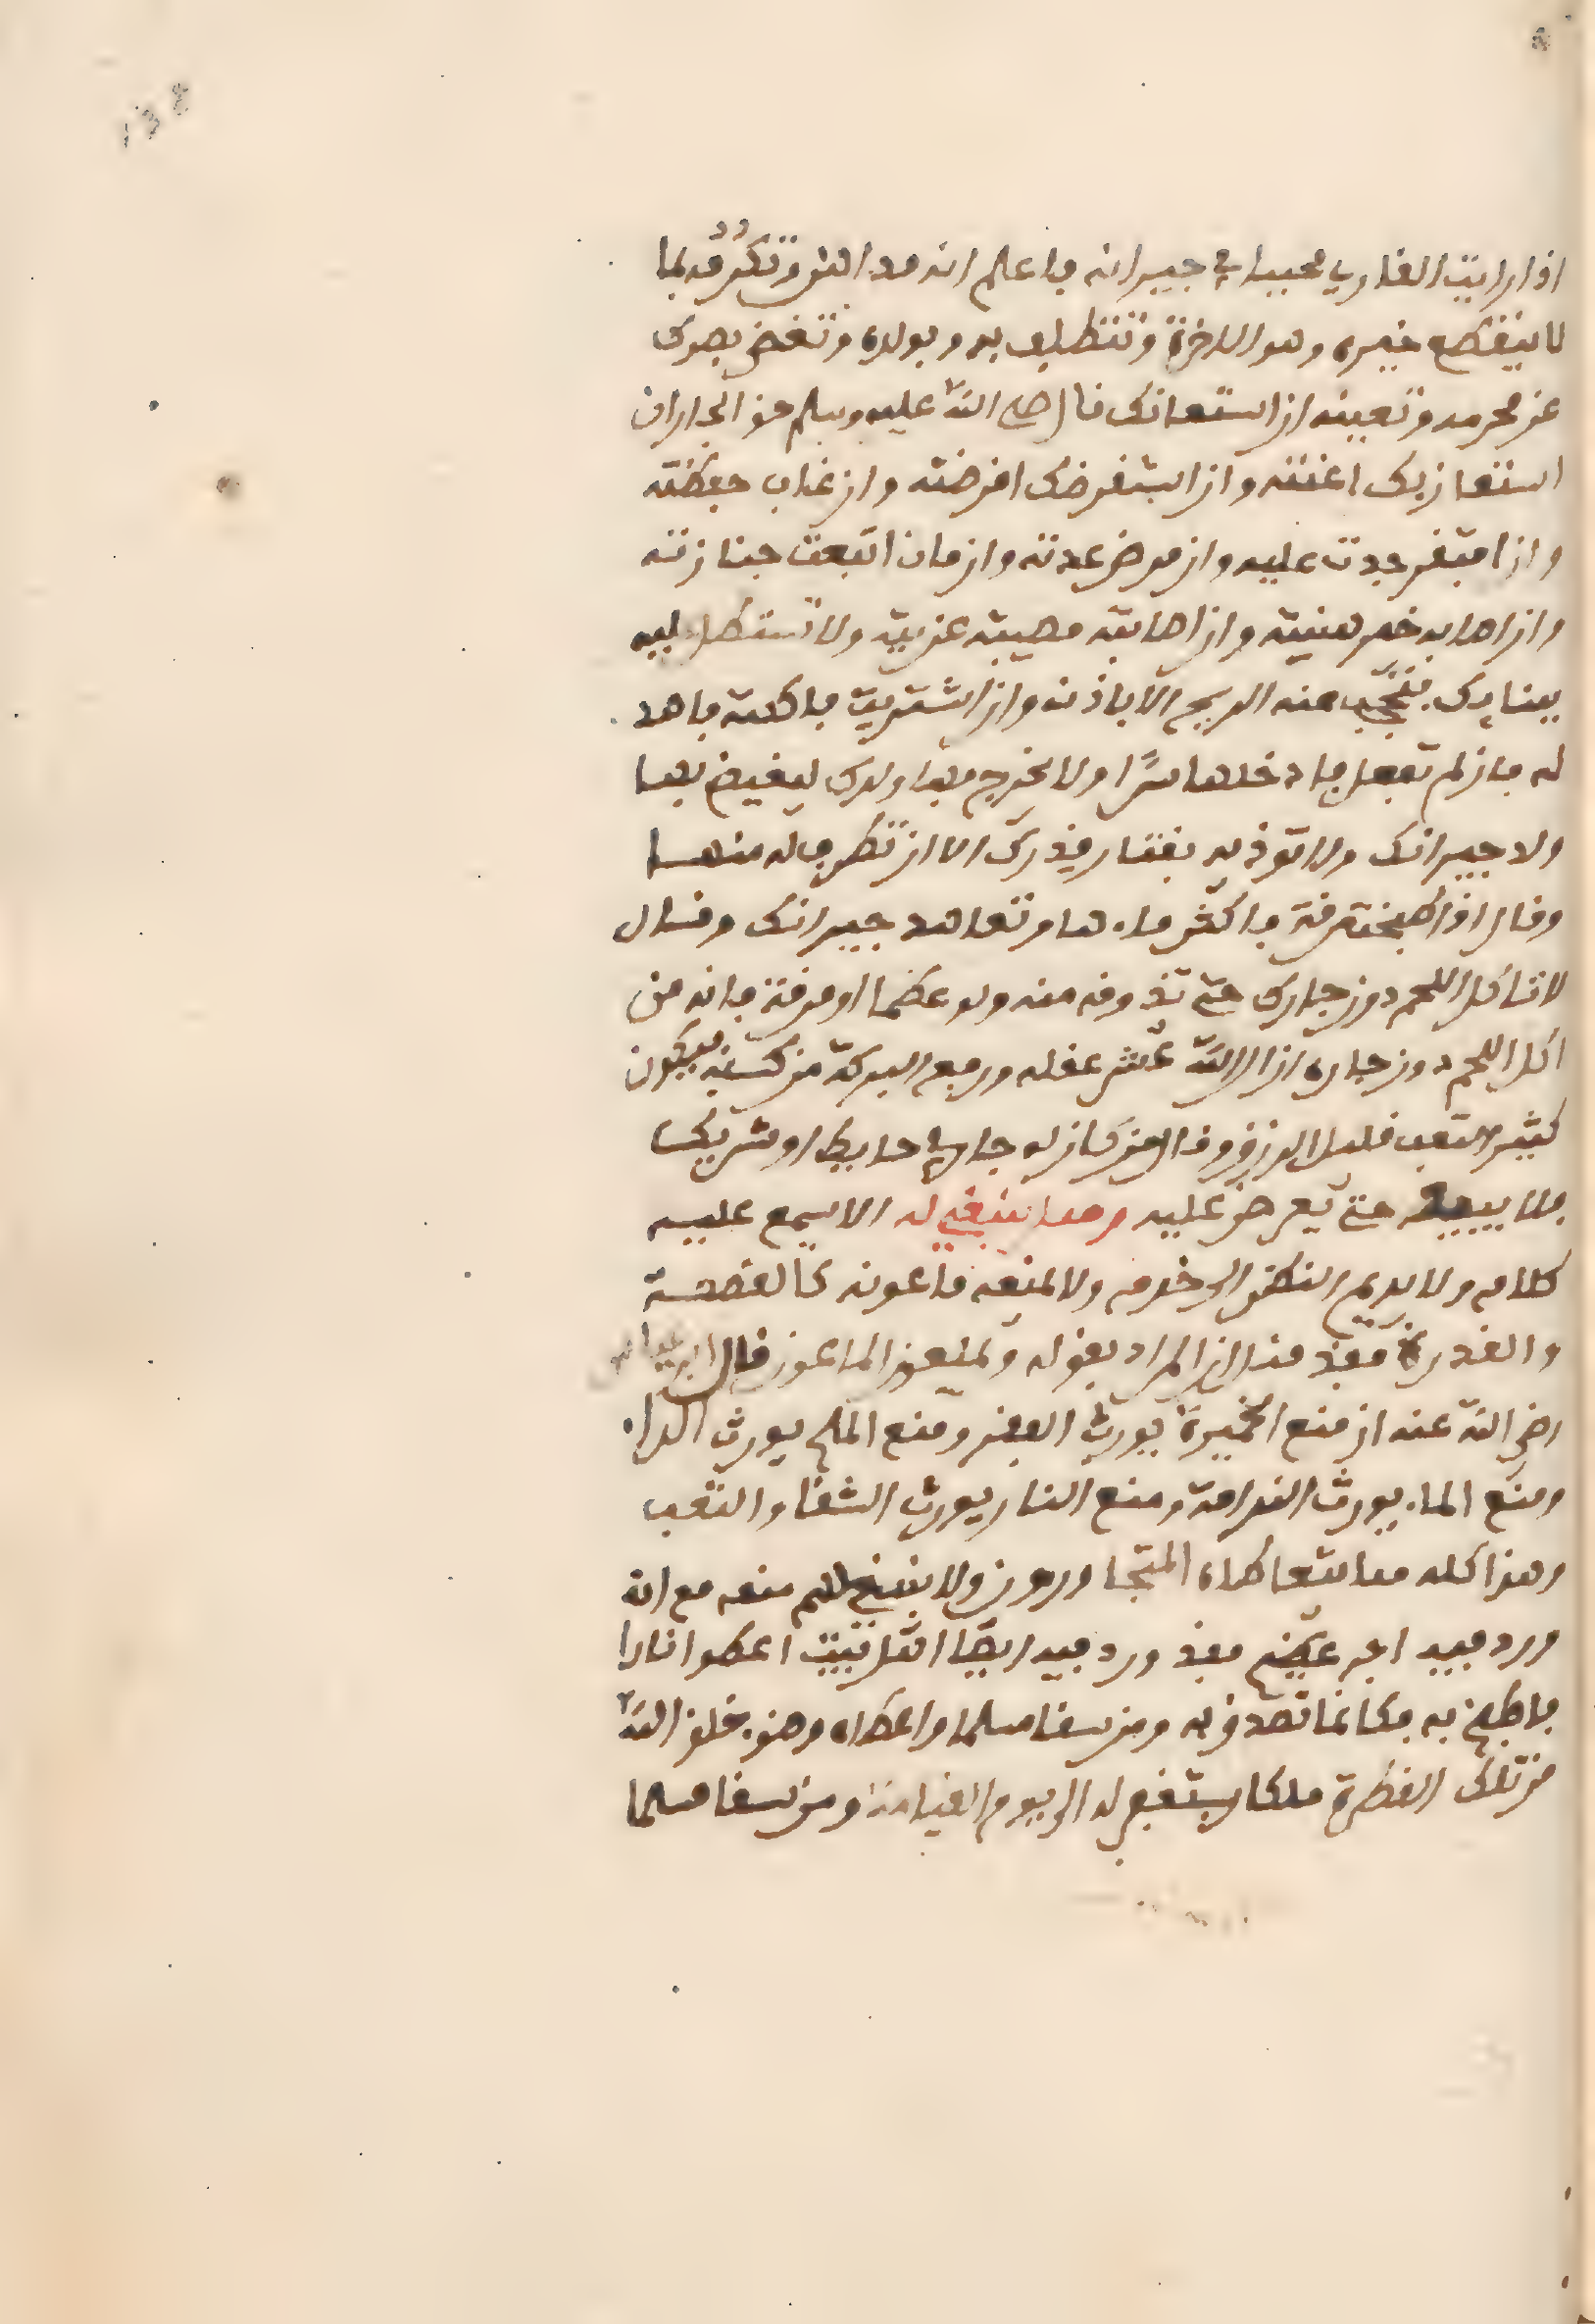 اذا رايت الفاري محببا في جيرانه فاعلم انه مداهن وتكرمه بما
لا ينقطع خيره وهو الاخرة وتتطلف به وبولده وتغض بصرك
عن محرمه وتعينه ان استعانك قال صلى الله عليه وسلم حق الجار ان
استعان بك اعنته وان استقرضك اقرضته وان غاب حفظته
وان افتقر جدت عليه وان مرض عدته وان مات اتبعت جنازته
وان اصابه خير هنيته وان اصابته مصيبة عزيته ولا تستطل عليه
ببنايك فتحجب عنه الريح الا باذنه وان اشتريت فاكهة فاهد
له فان لم تفعل فادخلها سرا ولا يخرج بها ولدك ليغيض بها
ولد جيرانك ولا توذيه بقتار قدرك الا ان تطرف له منها
وقال اذا طبخت مرقة فاكثر ماءها وتعاهد جيرانك وقال
لا تاكل اللحم دون جارك حتى تذوقه منه ولو عظما او مرقة فانه من
اكل اللحم دون جاره ازال الله عشر عقله ورفع البركة من كسبه فيكون
كثير التعب قليل الرزق وقال من كان له جار في حايط او شريك
فلا يبيعه حتى يعرض عليه ومما ينبغي له الا يسمع عليه
كلامه ولا يديم النظر الى خدمه ولا يمنعه ماعونه كالقصعة
والقدر فقد قيل ان المراد بقوله ويمنعون الماعون قال
رضي الله عنه ان منع الخميرة يورث الفقر ومنع الملح يورث الداء
ومنع الماء يورث الندامة ومنع النار يورث الشقا والتعب
وهذا كله مما يتعاطاه المتجاورون ولا ينبغي لهم منعه مع انه
ورد فيه اجر عظيم فقد ورد فيه ايضا اعطوا نارا
ما طبخ به فكانما تصدق به ومن سقا مسلما واعطاه وضوء خلق الله
من تلك القطرة ملكا يستغفر له الى يوم القيامة ومن سقا مسلما